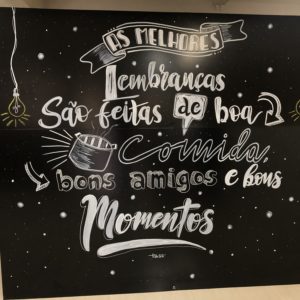 AS MELHORES
lembranças
São feitas de boa
Comida,
bons amigos e bons
Momentos